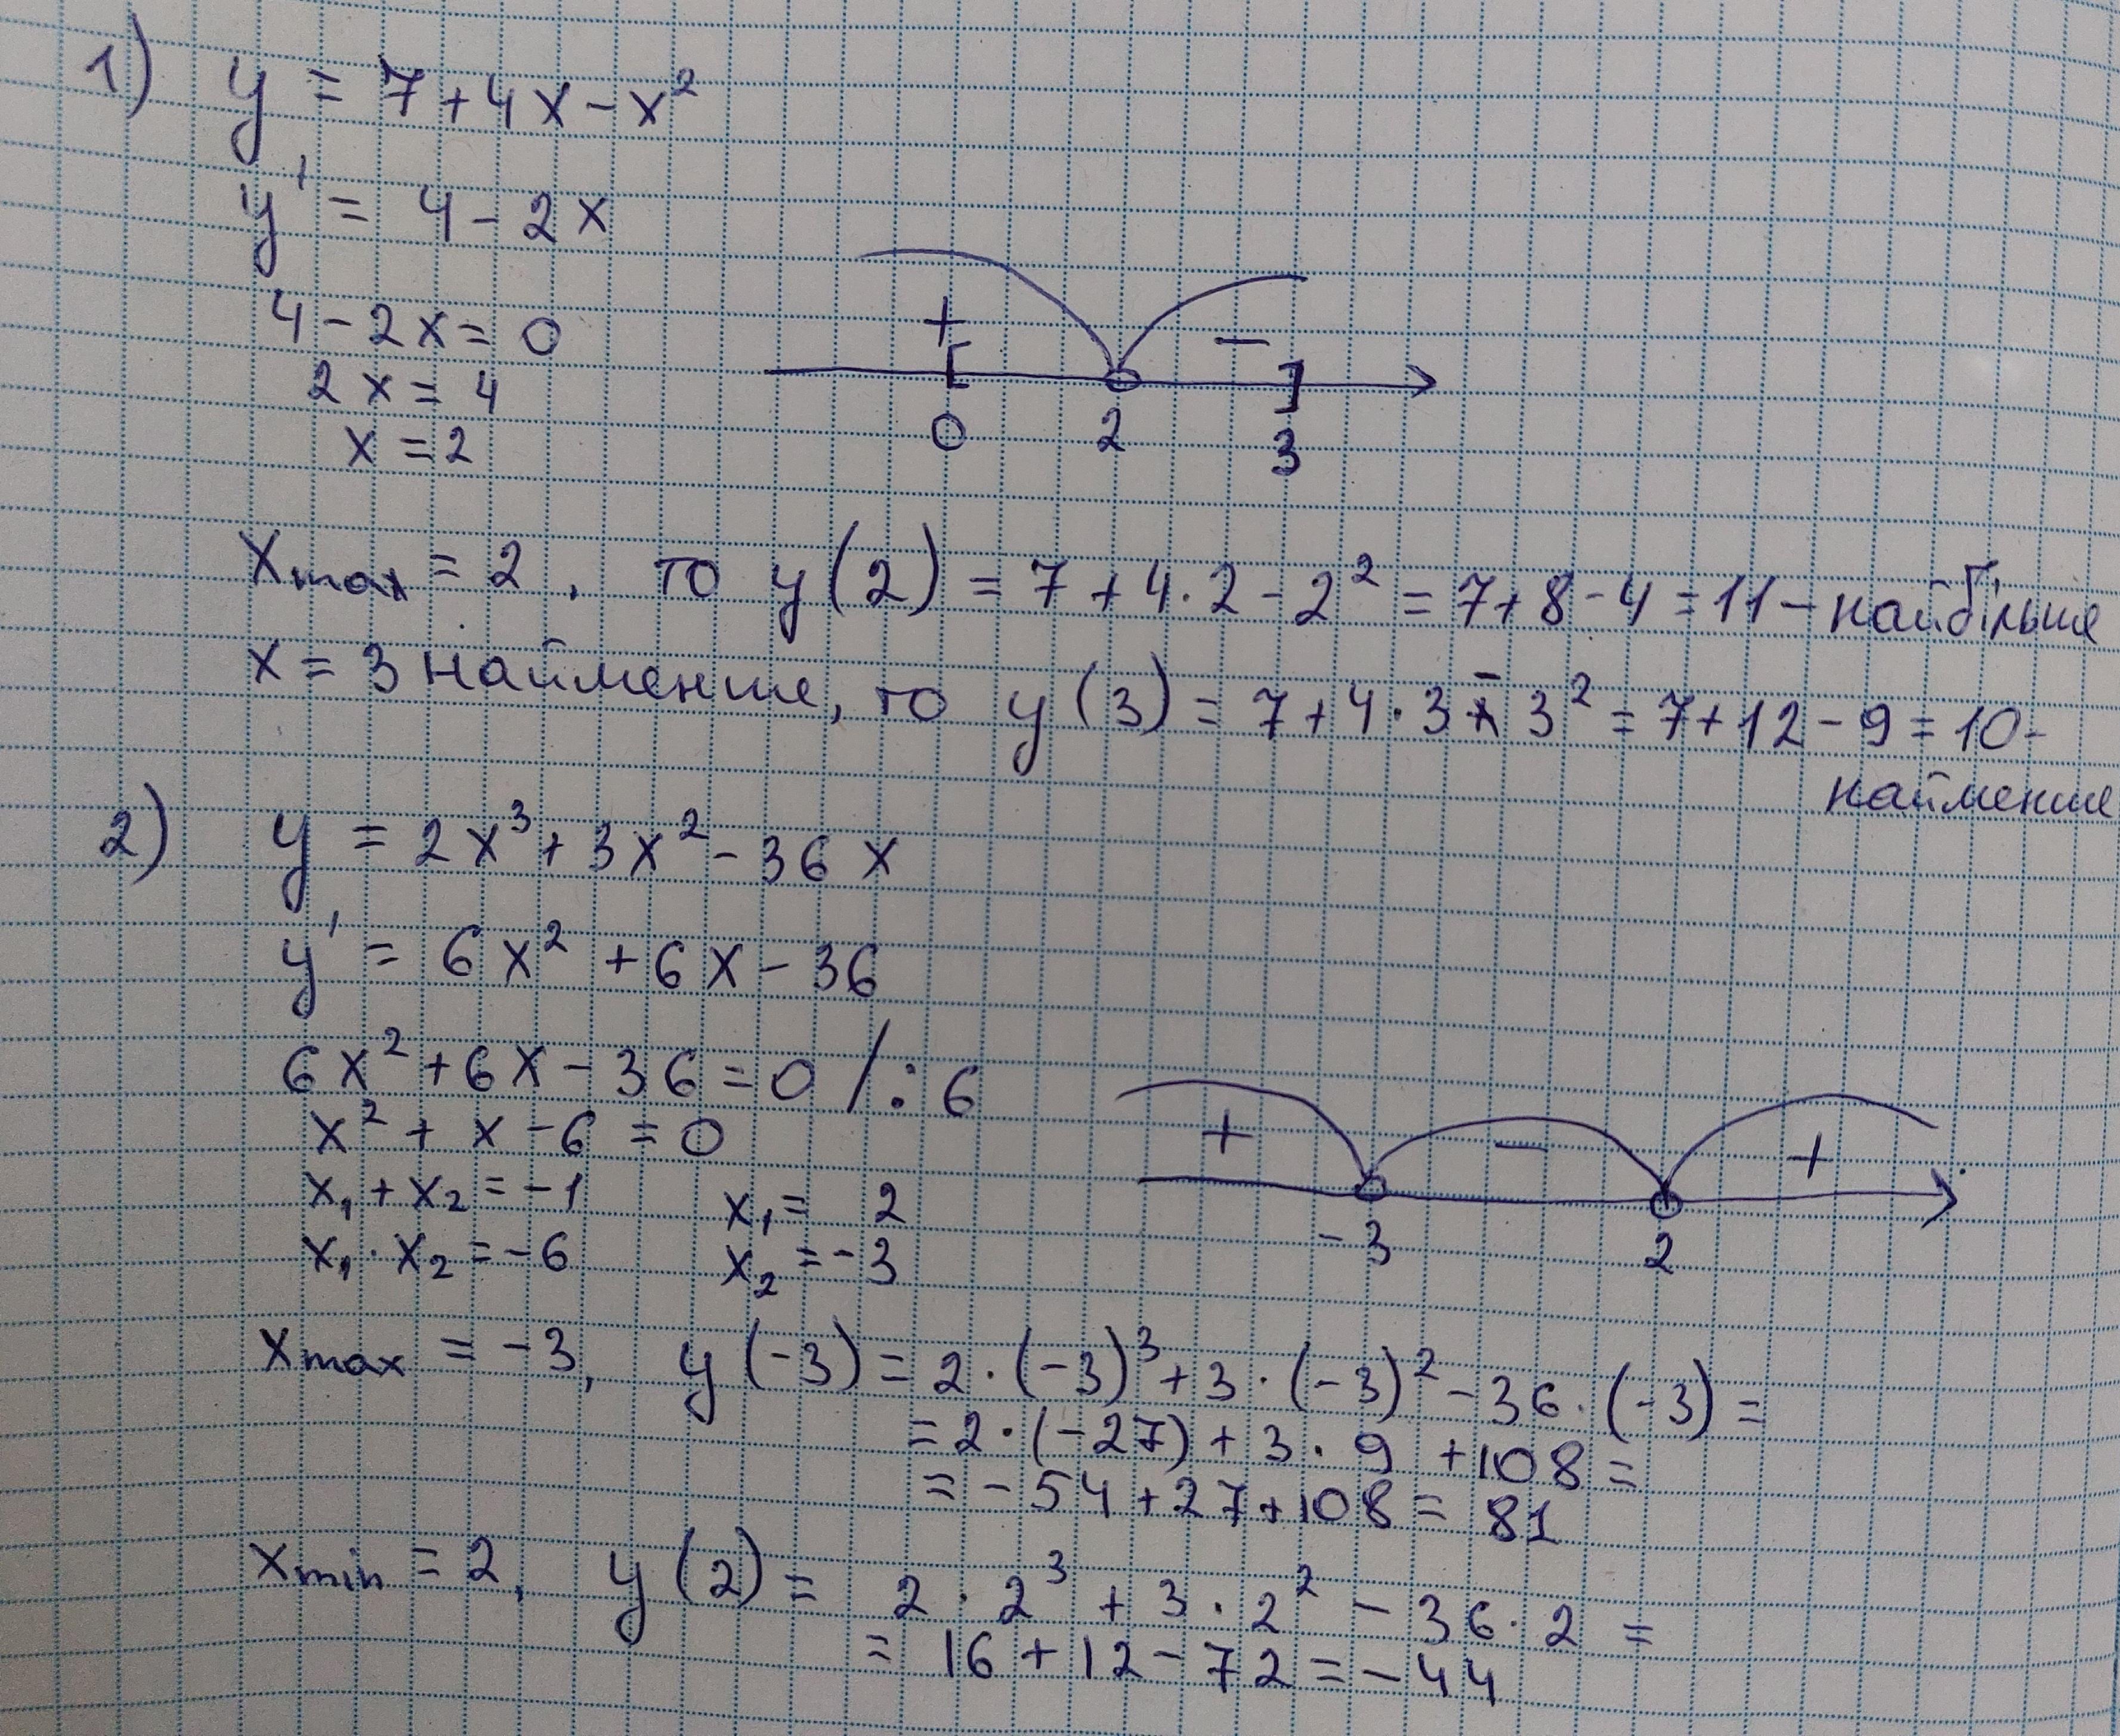 1) y = 7 + 4x - x²
y' = 4 - 2x
4 - 2x = 0
2x = 4
x = 2
+ -
0 2 3
xmax = 2, то y(2) = 7 + 4·2 - 2² = 7 + 8 - 4 = 11 - найбільше
x = 3 найменше, то y(3) = 7 + 4·3 - 3² = 7 + 12 - 9 = 10 -
найменше
2) y = 2x³ + 3x² - 36x
y' = 6x² + 6x - 36
6x² + 6x - 36 = 0 /:6
x² + x - 6 = 0
x₁ + x₂ = -1 x₁ = 2
x₁ · x₂ = -6 x₂ = -3
+ - +
-3 2
xmax = -3, y(-3) = 2·(-3)³ + 3·(-3)² - 36·(-3) =
= 2·(-27) + 3·9 + 108 =
= -54 + 27 + 108 = 81
xmin = 2, y(2) = 2·2³ + 3·2² - 36·2 =
= 16 + 12 - 72 = -44